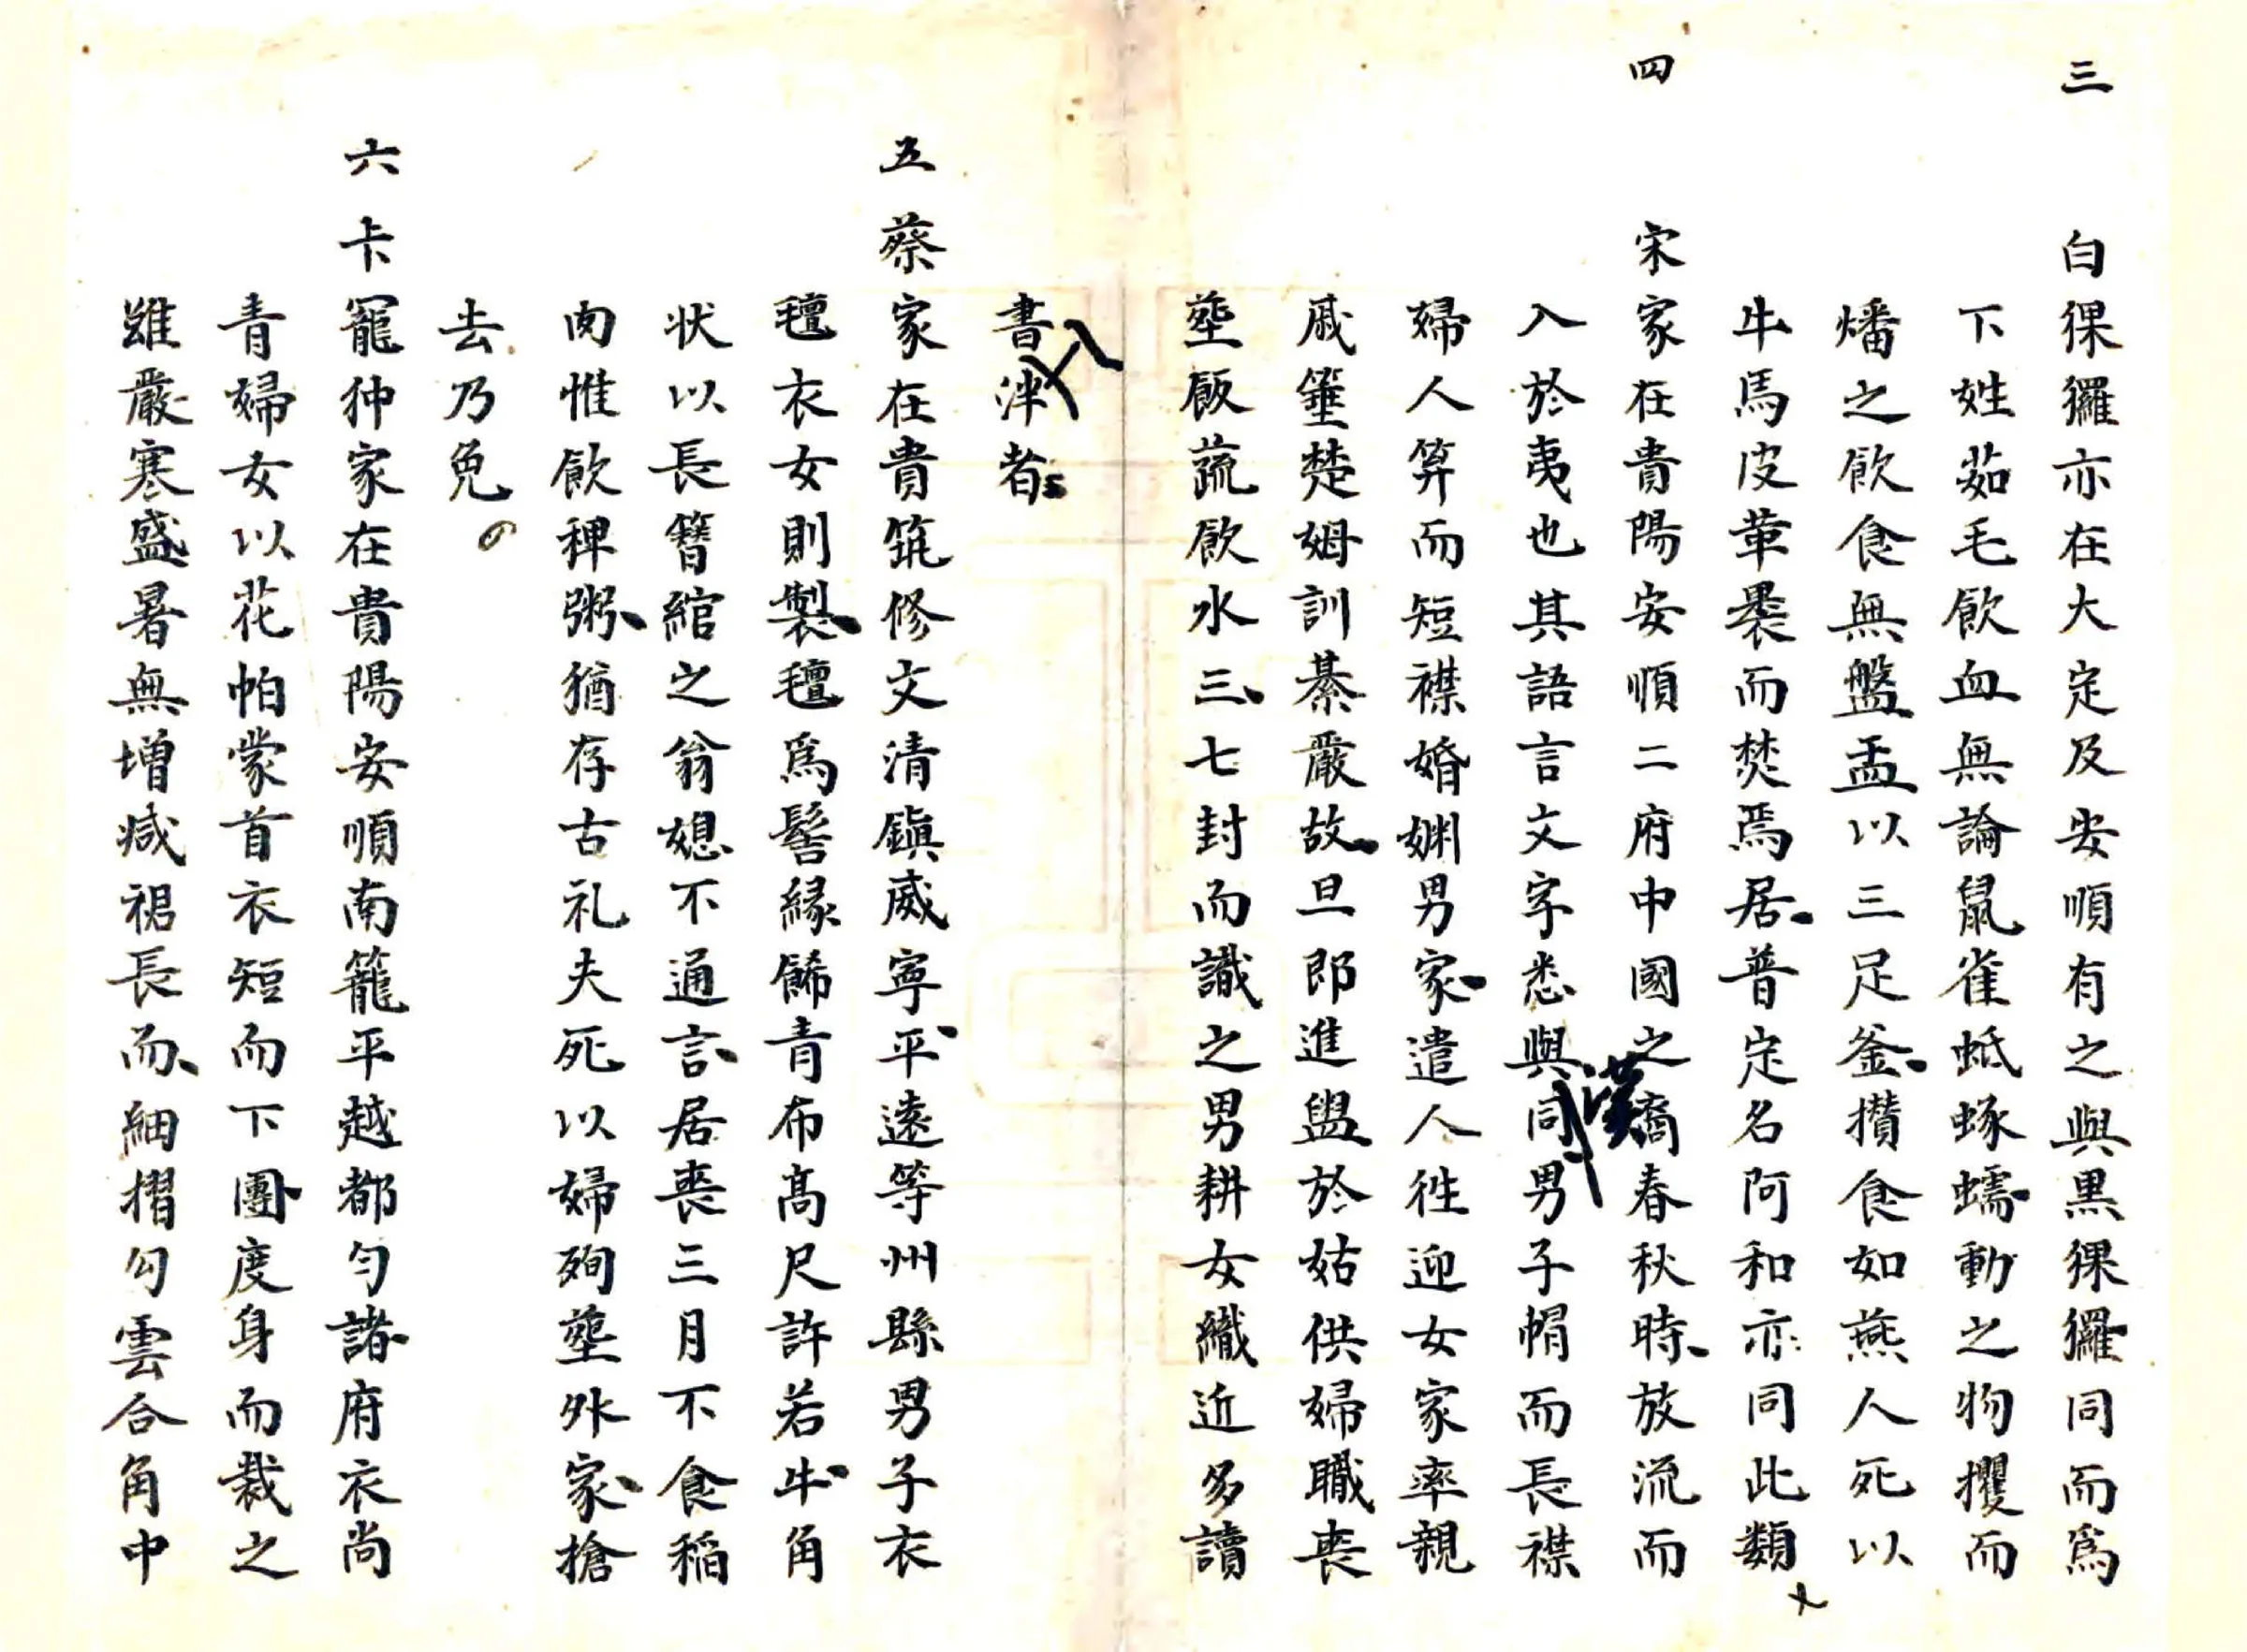 三
白猓玀亦在大定及安順有之與黒猓玀同而爲
下姓茹毛飲血無論鼠雀蚳蝝蠕動之物攫而
燔之飲食無盤盂以三足釜攅食如燕人死以
牛馬皮革褁而焚焉居普定名阿和亦同此類
四
宋家在貴陽安順二府中國之裔春秋時放流而
入於夷也其語言文字悉與漢同男子帽而長襟
婦人笄而短襟婚姻男家遣人徃迎女家率親
戚箠楚姆訓綦嚴故旦即進盥於姑供婦職喪
塟飯蔬飲水三七封而識之男耕女織近多讀
書入泮者
五
蔡家在貴筑修文清鎭威寧平遠等州縣男子衣
氊衣女則製氊爲髻縁餙青布髙尺許若牛角
状以長簪綰之翁媳不通言居喪三月不食稲
肉惟飲稗粥猶存古礼夫死以婦殉塟外家搶
去乃免
六
卡寵狆家在貴陽安順南籠平越都勻諸府衣尚
青婦女以花帕蒙首衣短而下團度身而裁之
雖嚴寒盛暑無增减裙長而細摺勾雲合角中